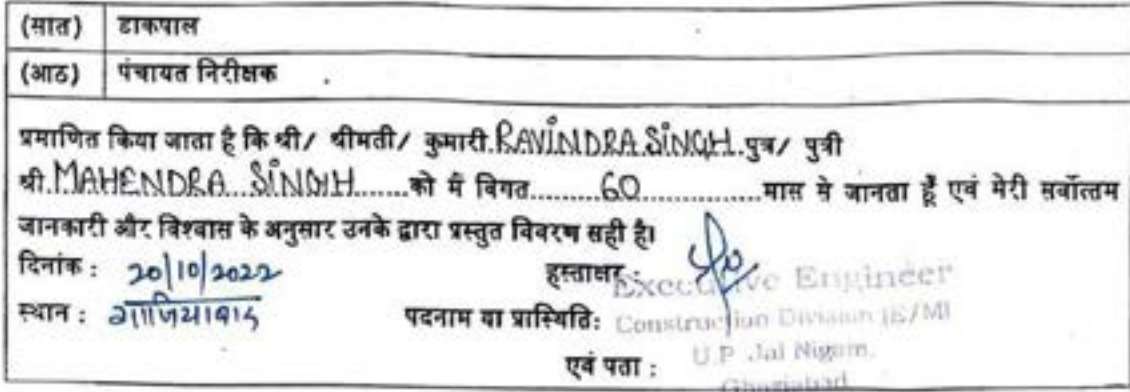 (सात) डाकपाल
(आठ) पंचायत निरीक्षक
प्रमाणित किया जाता है कि श्री/ श्रीमती/ कुमारी.RAVINDRA SINGH.पुत्र/ पुत्री
श्री.MAHENDRA SINGH........को मैं विगत..........60..................मास से जानता हूँ एवं मेरी सर्वोत्तम
जानकारी और विश्वास के अनुसार उनके द्वारा प्रस्तुत विवरण सही है।
दिनांक : 20/10/2022 हस्ताक्षर :
Executive Engineer
स्थान : गाजियाबाद पदनाम या प्रास्थिति: Construction Division (E/M)
U.P. Jal Nigam,
एवं पता :
Ghaziabad